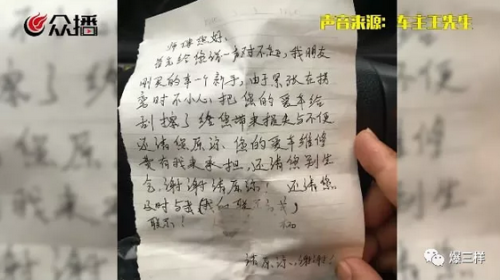 众播
声音来源：车主王先生
师傅您好。
首先给您说一声对不起，我朋友
刚买的车一个新手，由于紧张在挪
车时不小心，把您的爱车给
刮擦了给您带来报来与不便
还请您原谅、您的爱车维修
费有我来承担，还请您别生
气，谢谢请原谅！ 还请您
及时与我(我们联
联系！
请原谅、谢谢！
爆三样